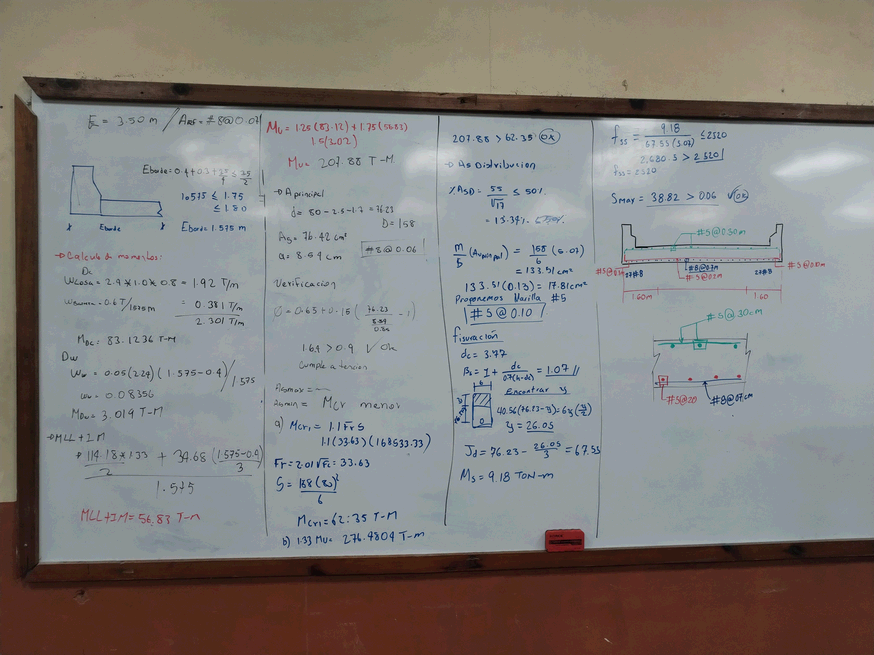 E = 3.50 m / A REF = #8@0.07
Eborde = 0.4+0.3+ 35/4 ≤ 35/2
1.0575 ≤ 1.75
≤ 1.80
Eborde
Eborde = 1.575 m
→ Calculo de momentos:
Dc
Wlosa = 2.4 * 1.0 * 0.8 = 1.92 T/m
= 0.6 T/1.575m = 0.381 T/m
2.301 T/m
MDC = 83.1236 T-M
Dw
Ww = 0.05(2.24)(1.575-0.4)/1.575
ww = 0.08356
MDw = 3.019 T-M
→ MLL + IM
114.18*1.33/2 + 34.68 (1.575-0.4)/3
1.575
MLL+IM = 56.83 T-M
Mu = 1.25(83.12) + 1.75(56.83)
1.5(3.02)
Mu = 207.88 T-M
→ A principal
d = 80-2.5-1.7 = 76.23
D = 158
As = 76.42 cm²
a = 8.59 cm
#8@0.06
Verificacion
0.65 + 0.15 ( 76.23 / - 1 )
1.64 > 0.9 ✓ Ok
Cumple a tension
Asmax = —
Asmin = Mcr menor
a) Mcr1 = 1.1 Fr S
1.1(33.63)(168533.33)
Fr = 2.01√F'c = 33.63
S = 158(80)²/6
Mcr1 = 62.35 T-M
b) 1.33 Mu = 276.4804 T-M
207.88 > 62.35 OK
→ As Distribucion
% ASD = 55/√17 ≤ 50%
= 13.34% ≤ 50%
m/b (A principal) = 158/6 (5.07)
= 133.51 cm²
133.51 (0.13) = 17.81 cm²
Proponemos Varilla #5
#5@0.10
fisuración
dc = 3.77
βs = 1 + dc/0.7(h-dc) = 1.07 //
b
Encontrar y
40.56(76.23-y) = 6y(y/2)
y = 26.05
Jd = 76.23 - 26.05/3 = 67.55
Ms = 9.18 TON-m
fss = 9.18 / 67.55 (5.07) ≤ 2320
2.680.5 > 2320
fss = 2320
Smax = 38.82 > 0.06 ✓ OK
#5@0.30m
27#8
27#8
1.60m
1.60
#5@30cm
#5@20
#8@07cm